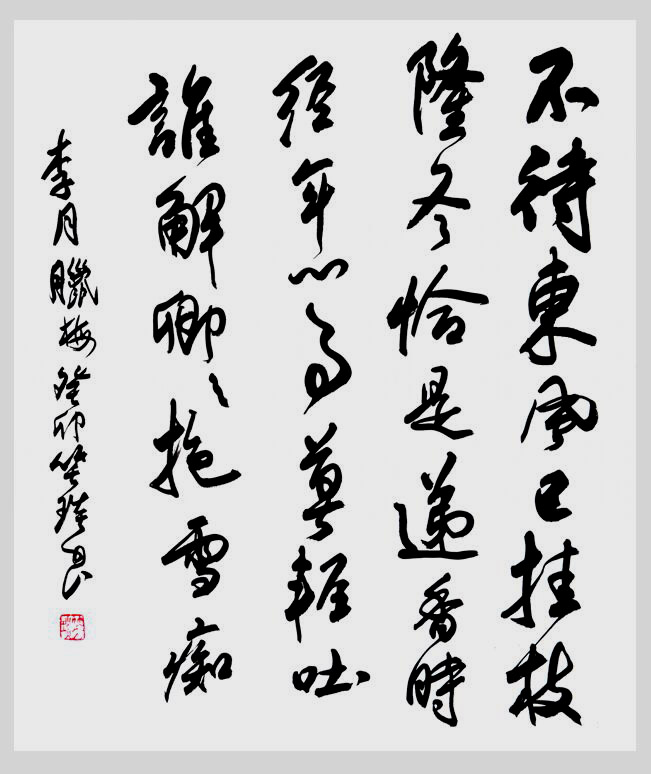 不待東風已挂枝
隆冬恰是递香時
经年心事莫輕吐
誰解卿々抱雪痴
李月臘梅癸卯